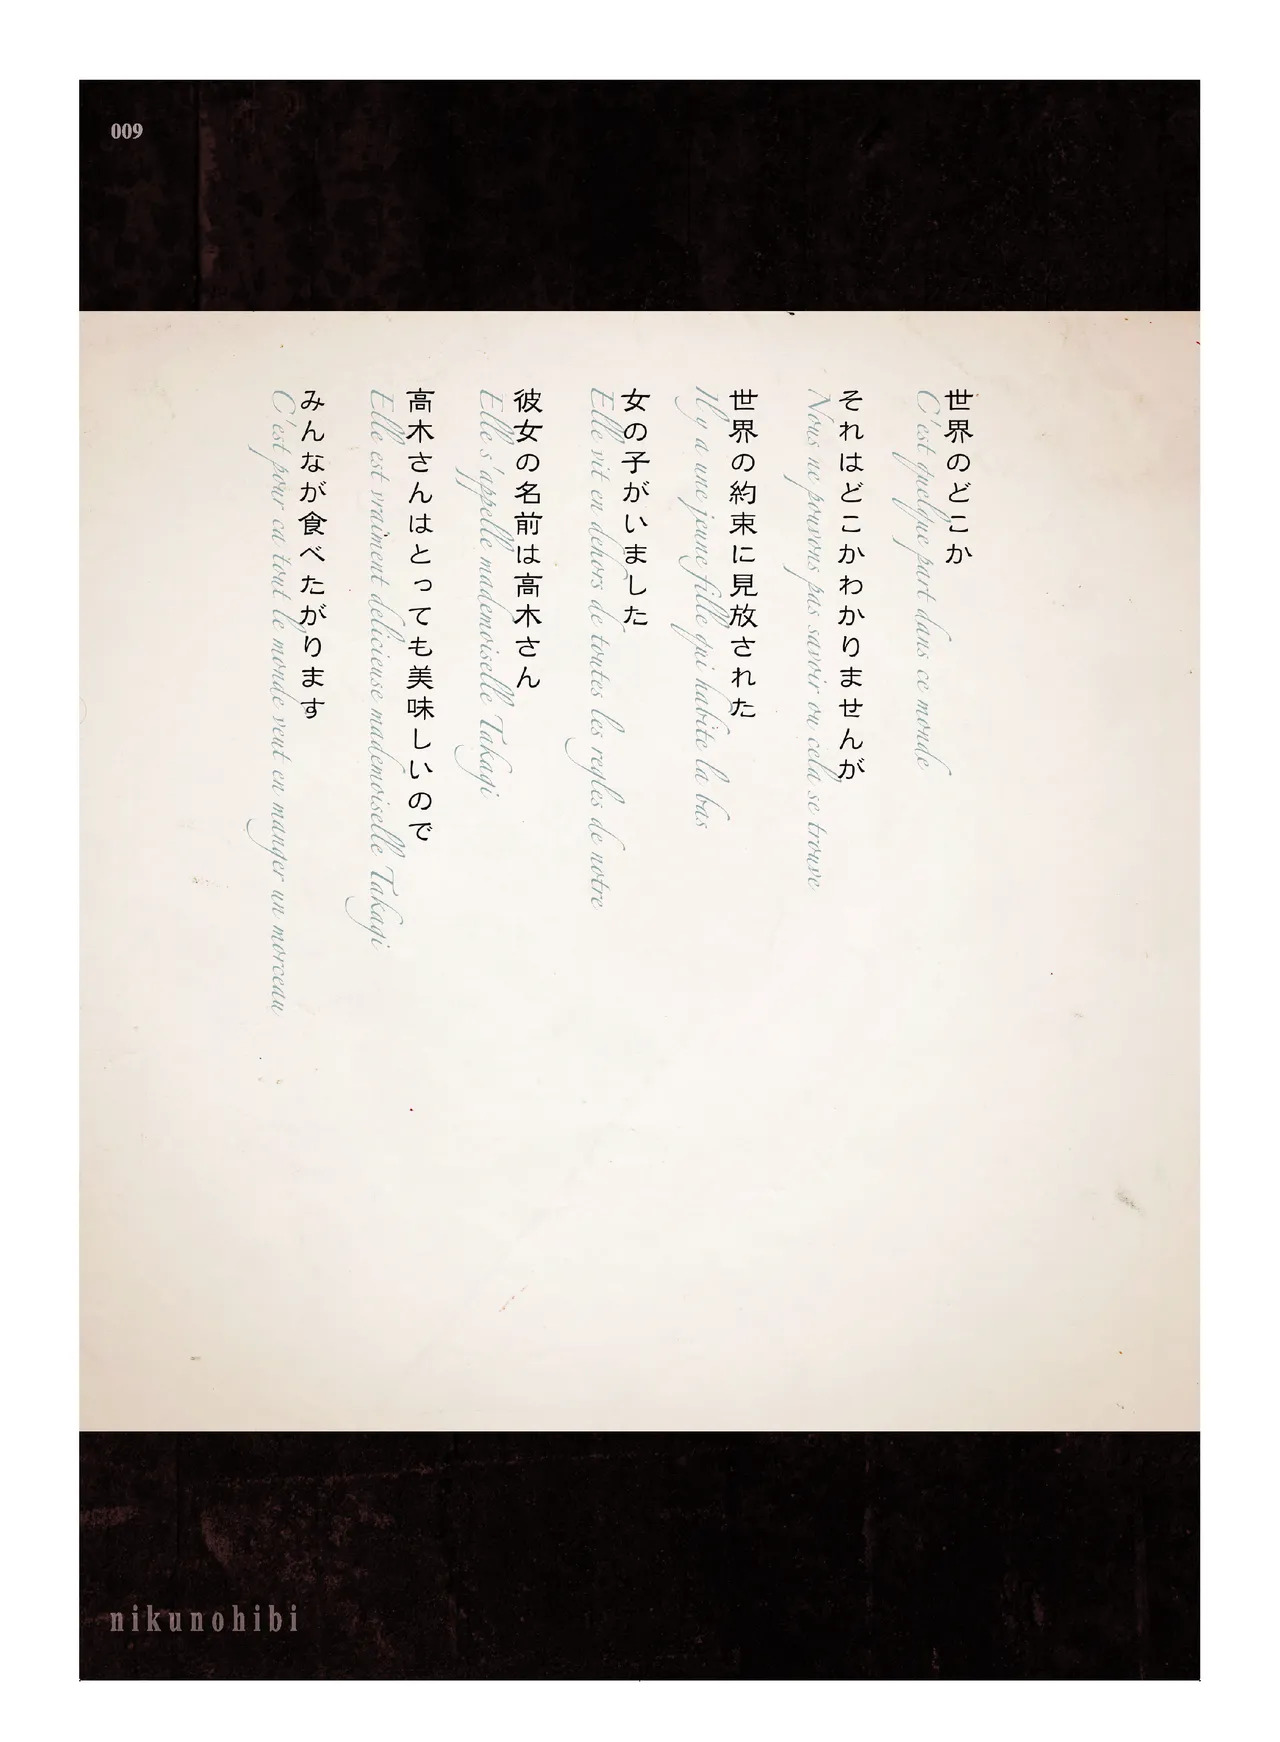 009
世界のどこか
C'est quelque part dans ce monde
それはどこかわかりませんが
Nous ne pouvons pas savoir ou cela se trouve
世界の約束に見放された
Il y a une jeune fille qui habite la bas
女の子がいました
Elle vit en dehors de toutes les regles de notre
彼女の名前は高木さん
Elle s'appelle mademoiselle Takagi
高木さんはとっても美味しいので
Elle est vraiment delicieuse mademoiselle Takagi
みんなが食べたがります
C'est pour ca tout le monde veut en manger un morceau
nikunohibi